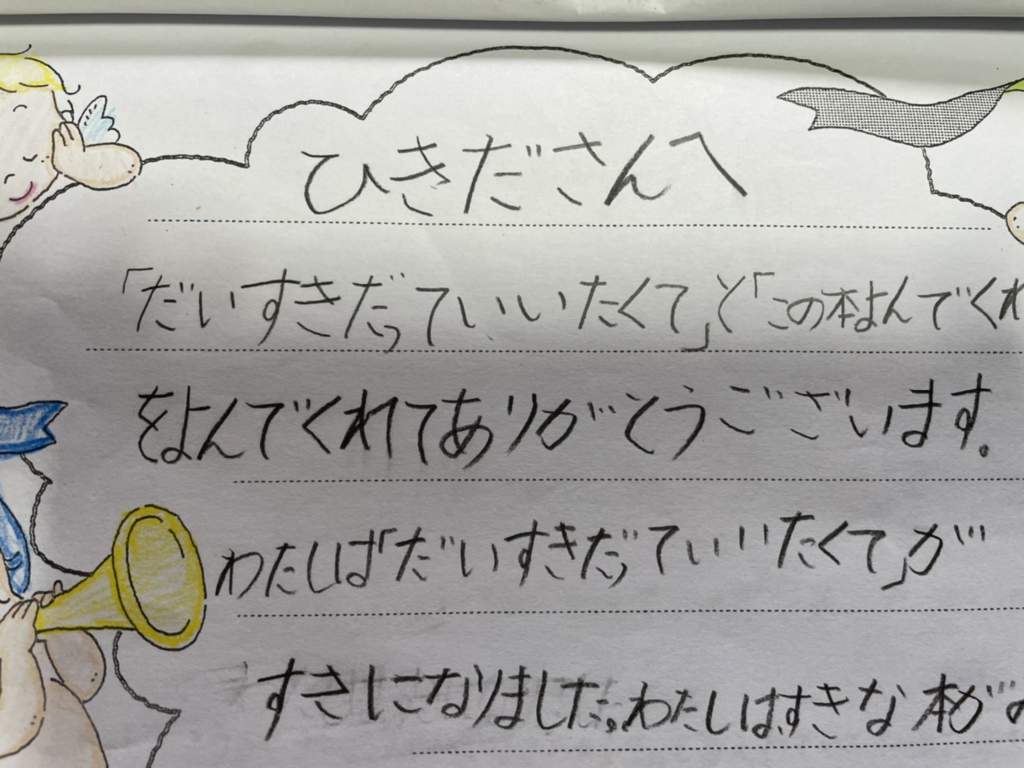 ひきださんへ
「だいすきだっていいたくて」と「この本よんでくれ
をよんでくれてありがとうございます。
わたしは「だいすきだっていいたくて」が
すきになりました。わたしはすきな本が